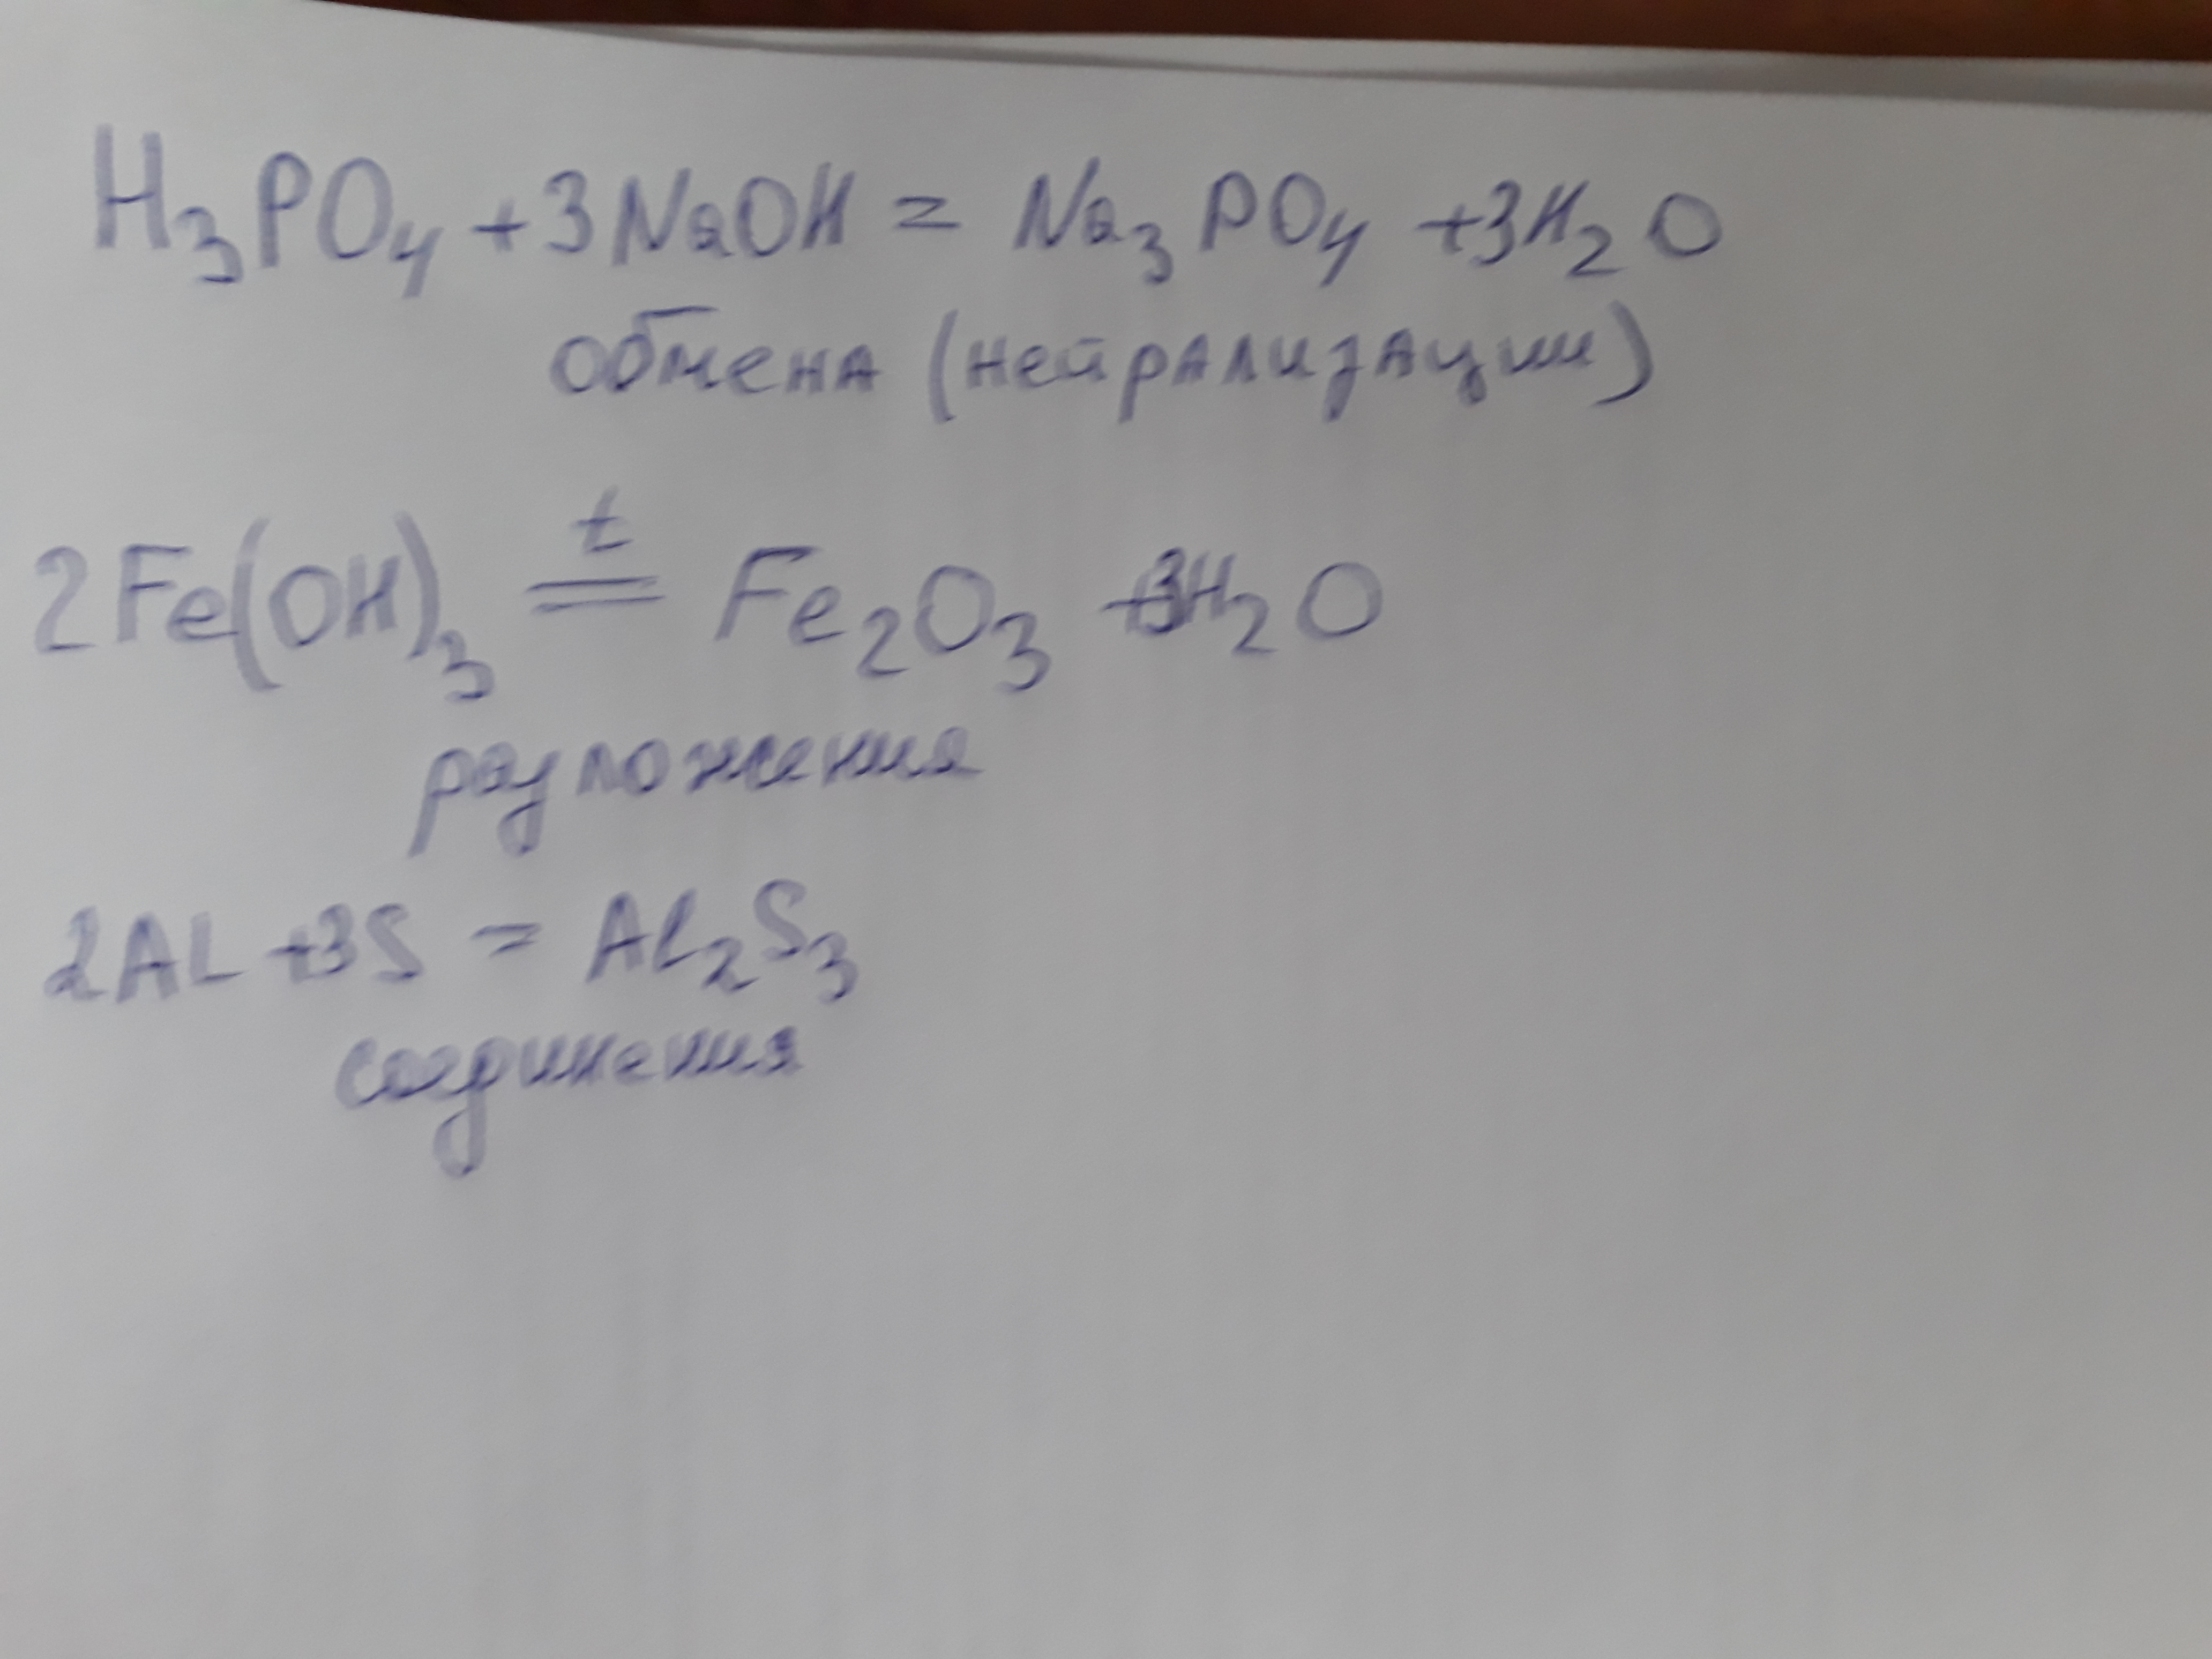 H₃PO₄ + 3NaOH = Na₃PO₄ + 3H₂O
обмена (нейрализации)
t
2Fe(OH)₃ = Fe₂O₃ + 3H₂O
разложения
2AL + 3S = Al₂S₃
соединения